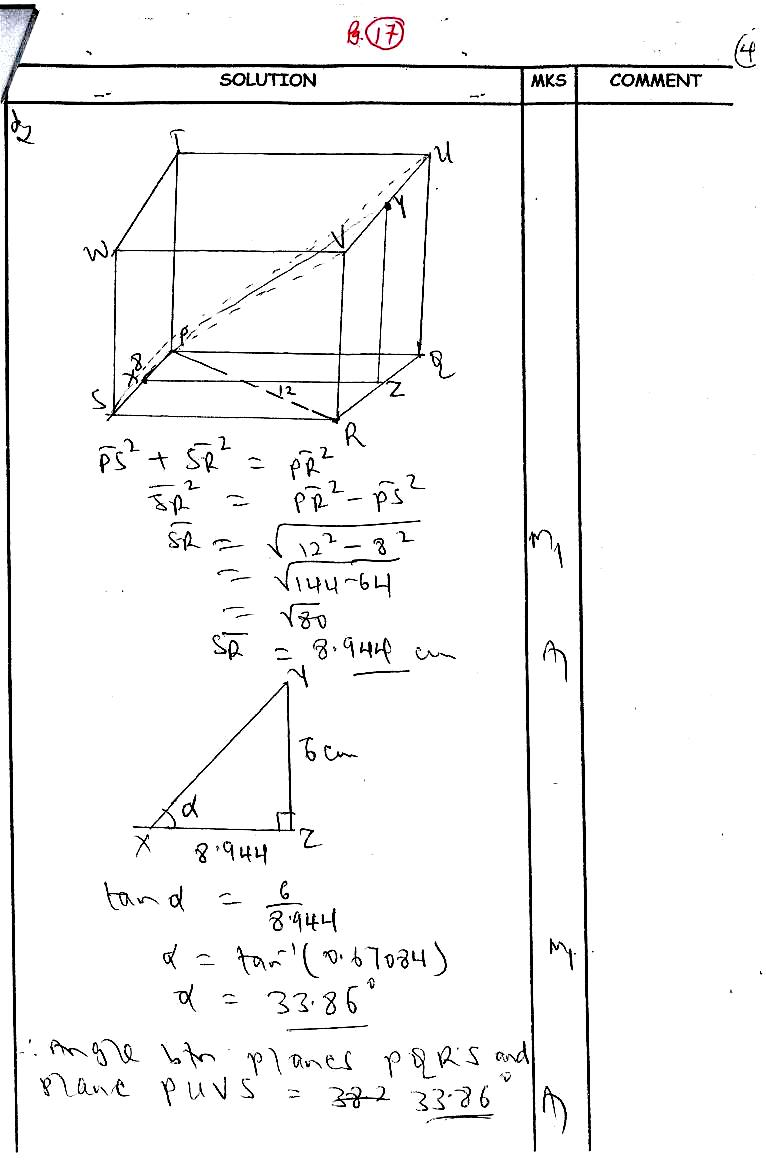 Pg. 17
4
SOLUTION MKS COMMENT
T
U
Y
W
V
P
8
X
Q
S
12
Z
R
P̅S̅² + S̅R̅² = P̅R̅²
S̅R̅² = P̅R̅² − P̅S̅²
S̅R̅ = √12² − 8² M1
= √144-64
= √80
S̅R̅ = 8.944 cm A1
Y
6 cm
α
X
8.944
Z
tan α = 6/8.944
α = tan⁻¹(0.67084) M1
α = 33.86°
∴ Angle btn planes PQRS and
plane PUVS = 33.86° A1